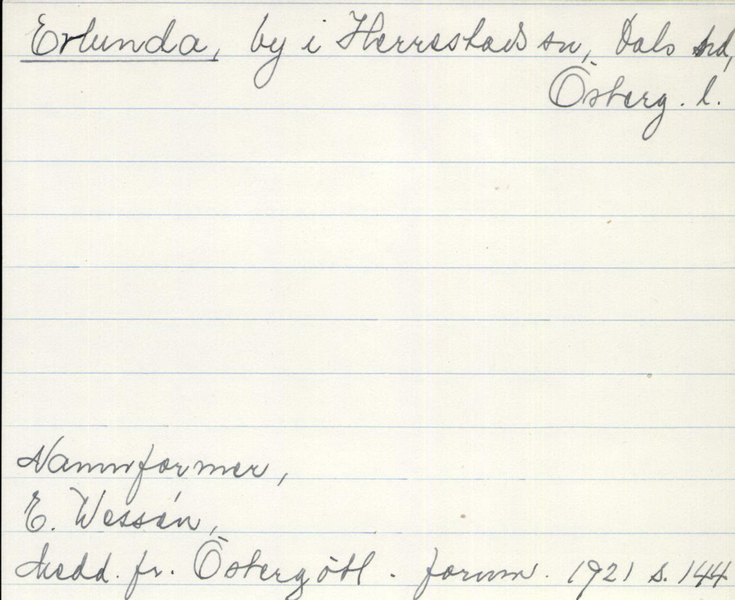 Erlunda, by i Herrestads sn, Dals hd,
Österg. l.
Namnformer,
E. Wessén,
Medd. fr. Östergötl. fornm. 1921 s. 144